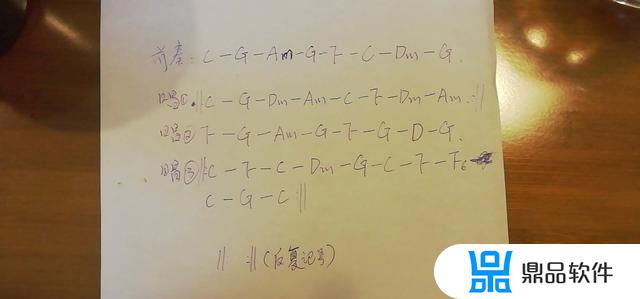 前奏: C-G-Am-G-F-C-Dm-G.
唱①.||:C-G-Dm-Am-C-F-Dm-Am.:||
唱② F-G-Am-G-F-G-D-G.
唱③||:C-F-C-Dm-G-C-F-F6
C-G-C:||
||: :||(反复记号)
鼎品软件